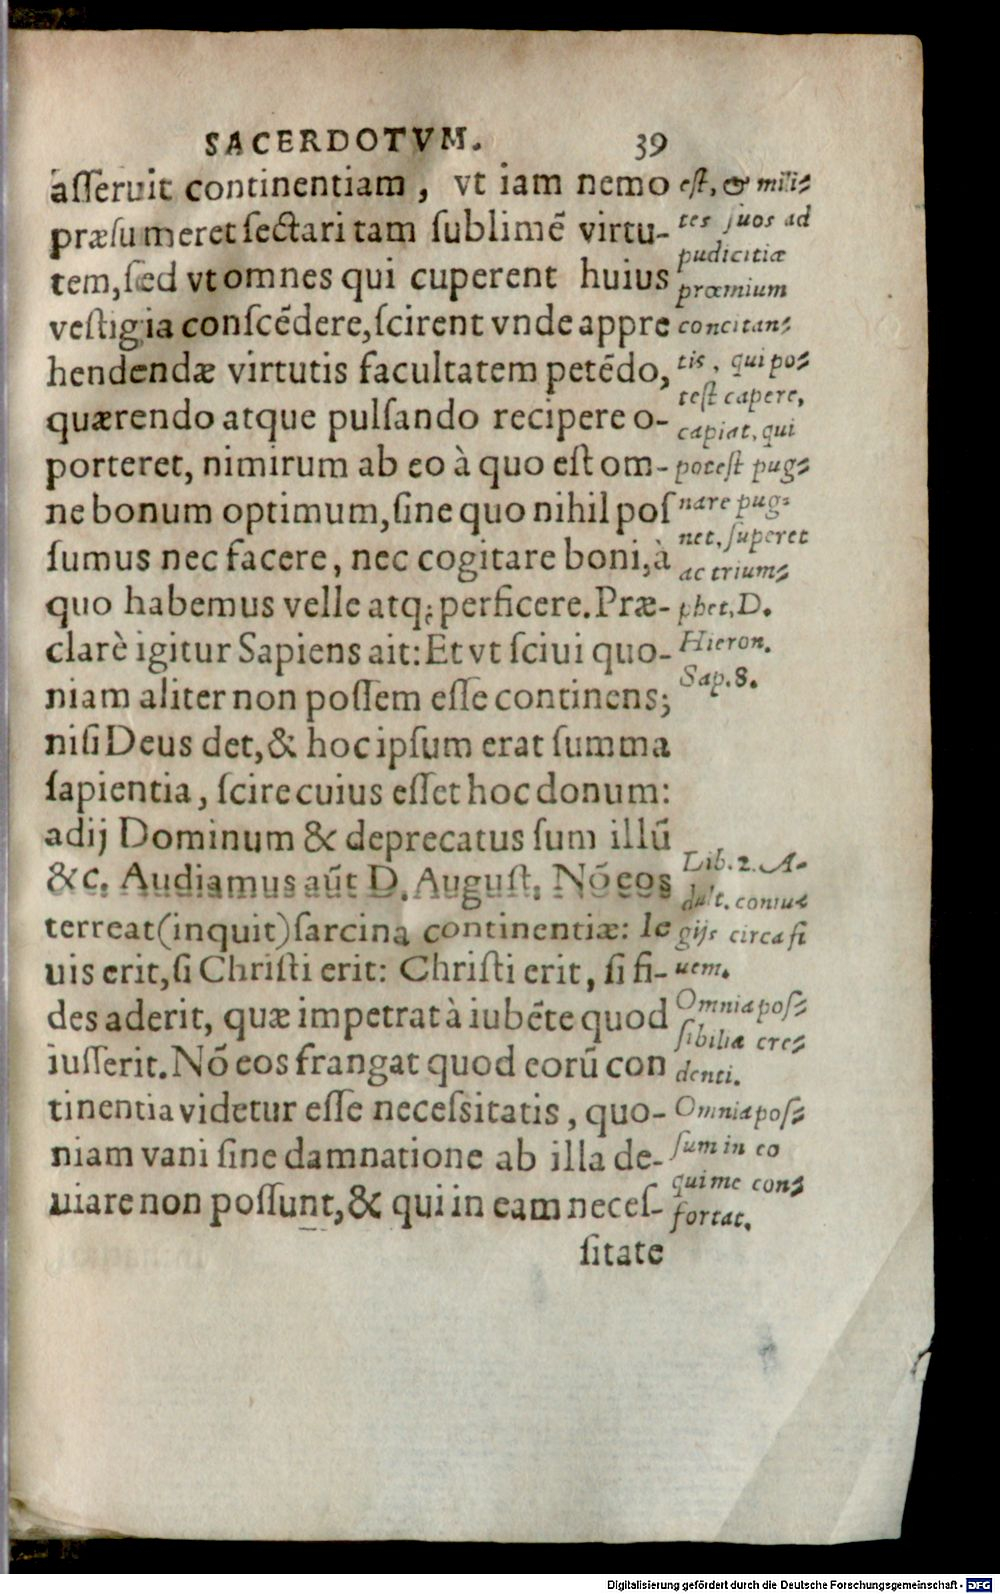 SACERDOTVM. 39
aſſeruit continentiam, vt iam nemo
præſumeret ſectari tam ſublimẽ virtu-
tem, ſed vt omnes qui cuperent huius
veſtigia conſcẽdere, ſcirent vnde appre
hendendæ virtutis facultatem petẽdo,
quærendo atque pulſando recipere o-
porteret, nimirum ab eo à quo eſt om-
ne bonum optimum, ſine quo nihil poſ
ſumus nec facere, nec cogitare boni, à
quo habemus velle atq; perficere. Præ-
clarè igitur Sapiens ait: Et vt ſciui quo-
niam aliter non poſſem eſſe continens;
niſi Deus det, & hoc ipſum erat ſumma
ſapientia, ſcire cuius eſſet hoc donum:
adij Dominum & deprecatus ſum illũ
&c. Audiamus aũt D. Auguſt. Nõ eos
terreat (inquit) ſarcina continentiæ: le
uis erit, ſi Chriſti erit: Chriſti erit, ſi fi-
des aderit, quæ impetrat à iubẽte quod
iuſſerit. Nõ eos frangat quod eorũ con
tinentia videtur eſſe neceſsitatis, quo-
niam vani ſine damnatione ab illa de-
uiare non poſſunt, & qui in eam neceſ-
ſitate
eſt, & mili-
tes ſuos ad
pudicitiæ
præmium
concitan-
tis, qui po-
teſt capere,
capiat, qui
poteſt pug-
nare pug-
net, ſuperet
ac trium-
phet, D.
Hieron.
Sap. 8.
Lib. 2. A-
dult. coniu-
gijs circa fi
uem.
Omnia poſ-
ſibilia cre-
denti.
Omnia poſ-
ſum in eo
qui me con-
fortat.
Digitalisierung gefördert durch die Deutsche Forschungsgemeinschaft - DFG